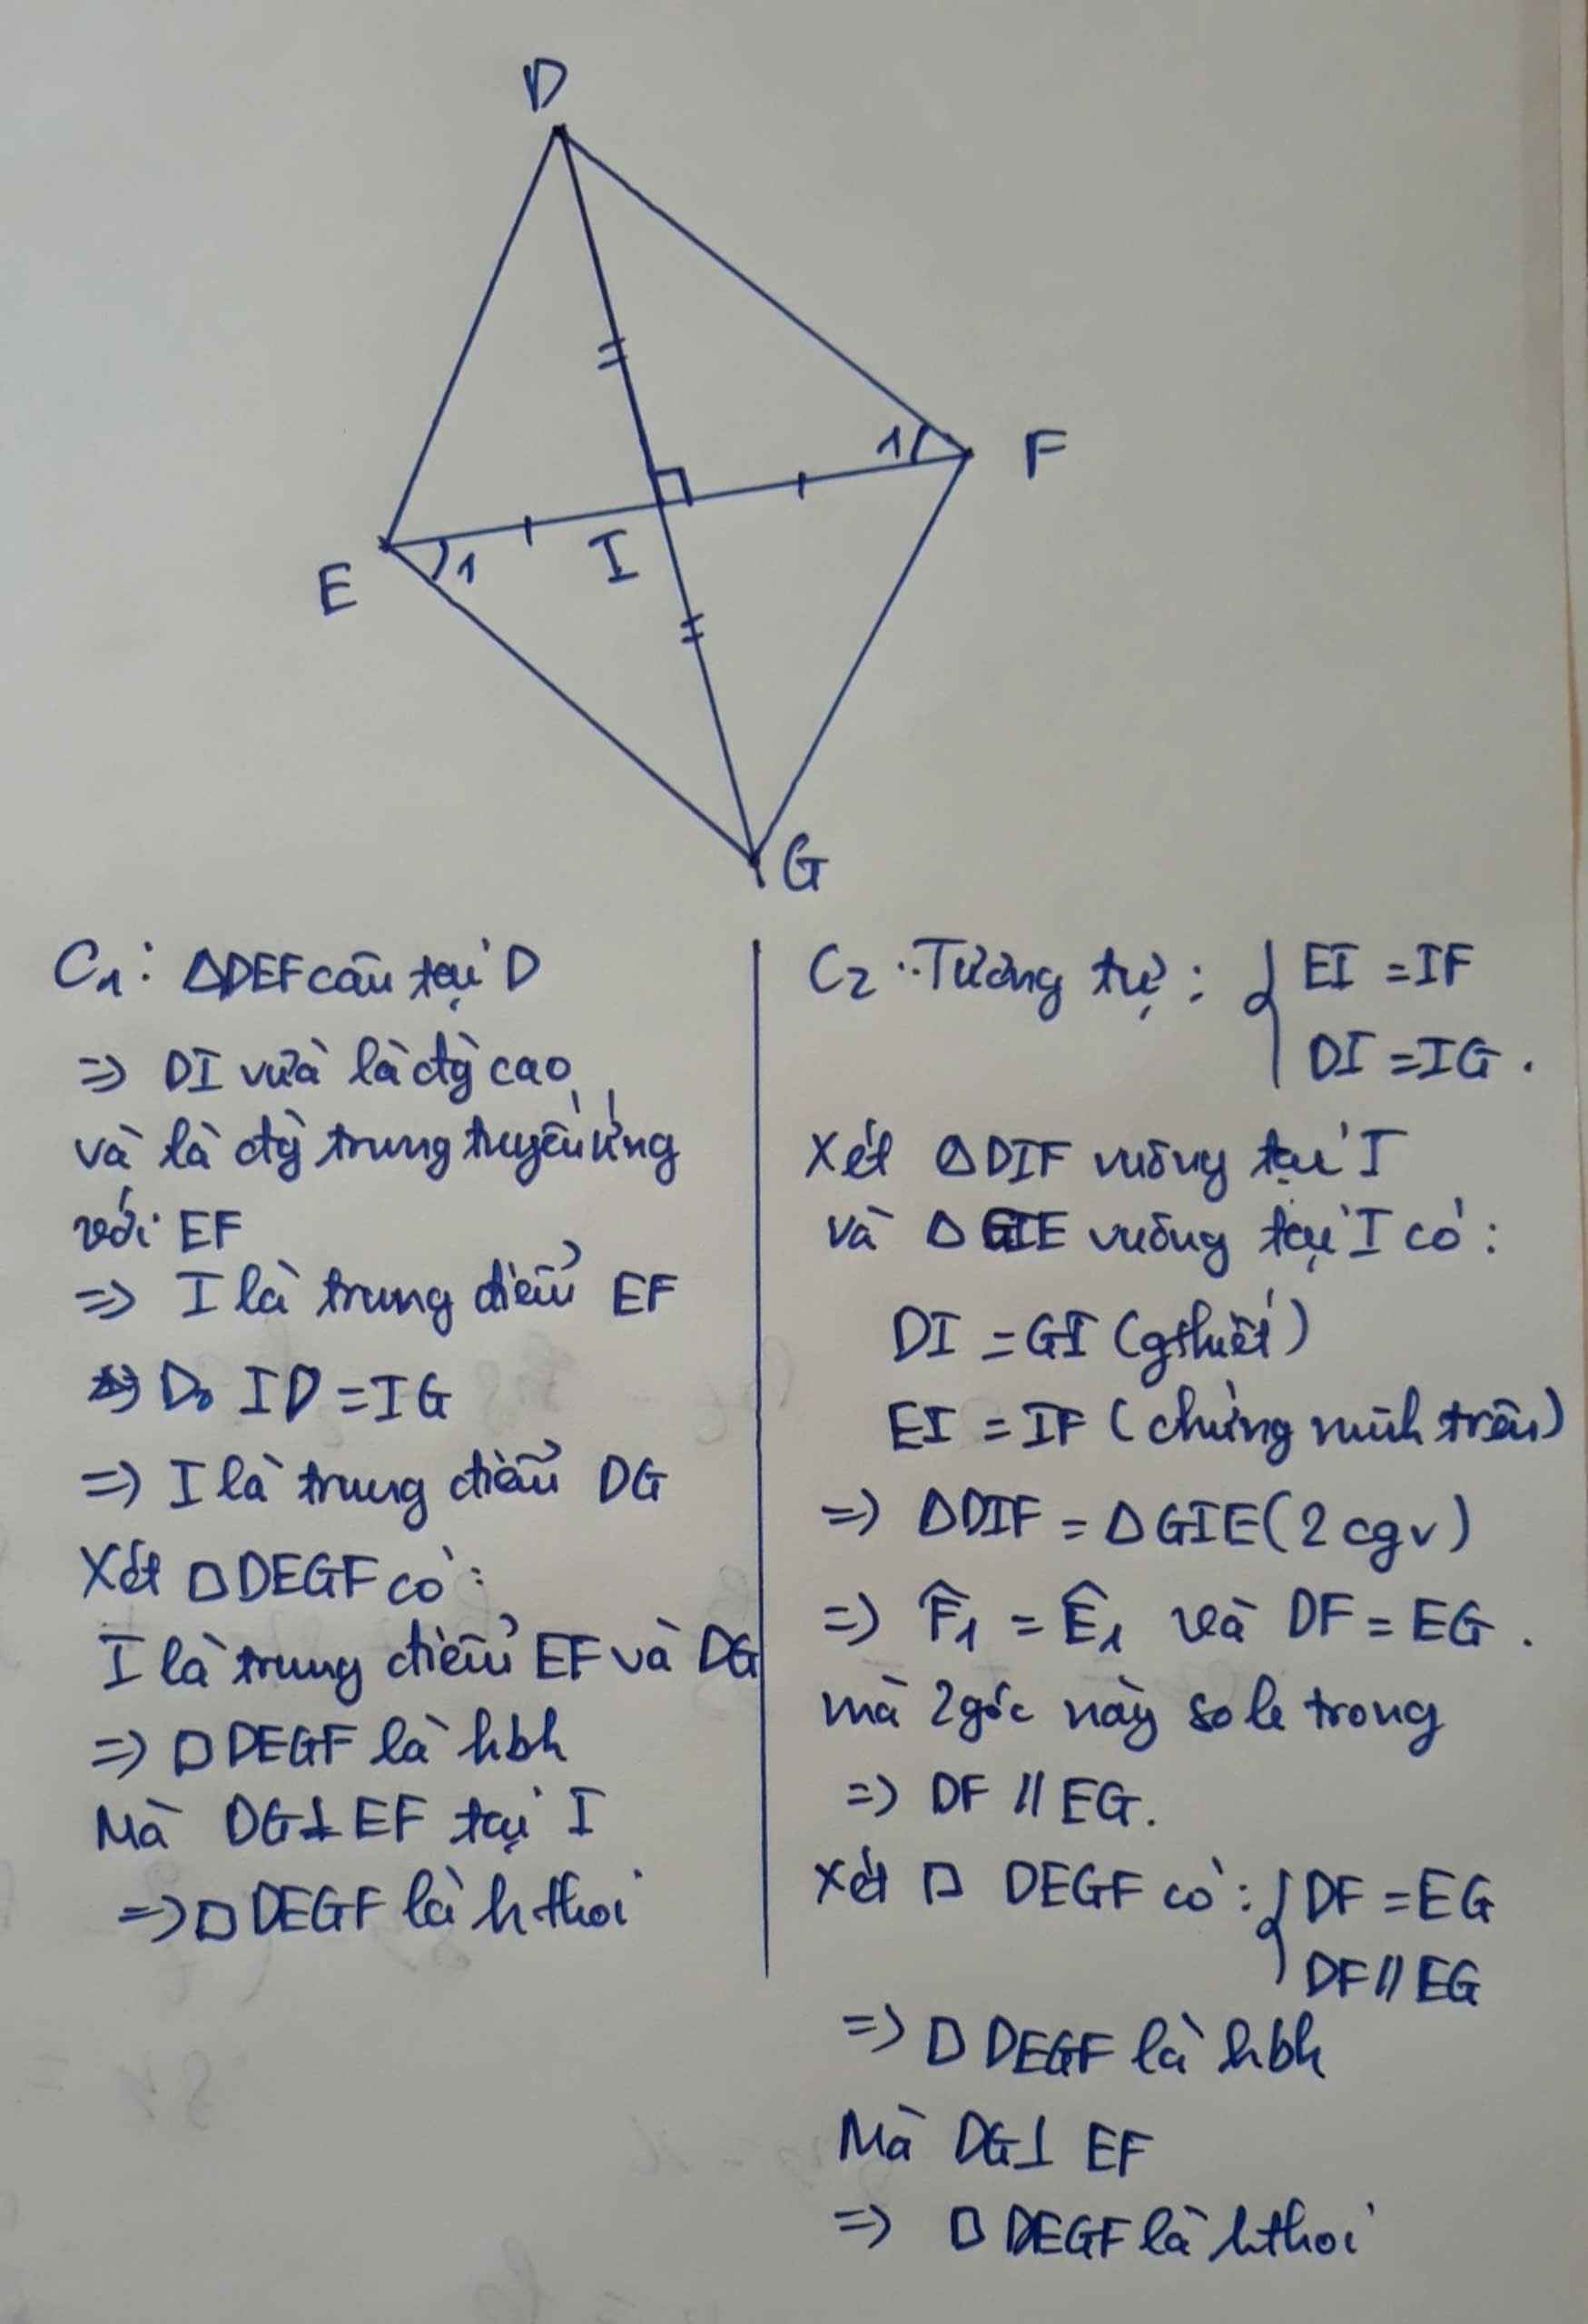 D
1
F
E
1
I
G
C₁: ΔDEF cân tại D
=> DI vừa là đg cao
và là đg trung tuyến ứng
với EF
=> I là trung điểm EF
Do ID = IG
=> I là trung điểm DG
Xét □DEGF có:
I là trung điểm EF và DG
=> □DEGF là hbh
Mà DG⊥EF tại I
=> □DEGF là h.thoi
C₂: Tương tự: { EI = IF
DI = IG.
Xét ΔDIF vuông tại I
và ΔGIE vuông tại I có:
DI = GI (gthiết)
EI = IF (chứng minh trên)
=> ΔDIF = ΔGIE (2 cgv)
=> F̂₁ = Ê₁ và DF = EG.
mà 2 góc này so le trong
=> DF // EG.
Xét □ DEGF có: { DF = EG
DF // EG
=> □ DEGF là hbh
Mà DG⊥ EF
=> □ DEGF là hthoi